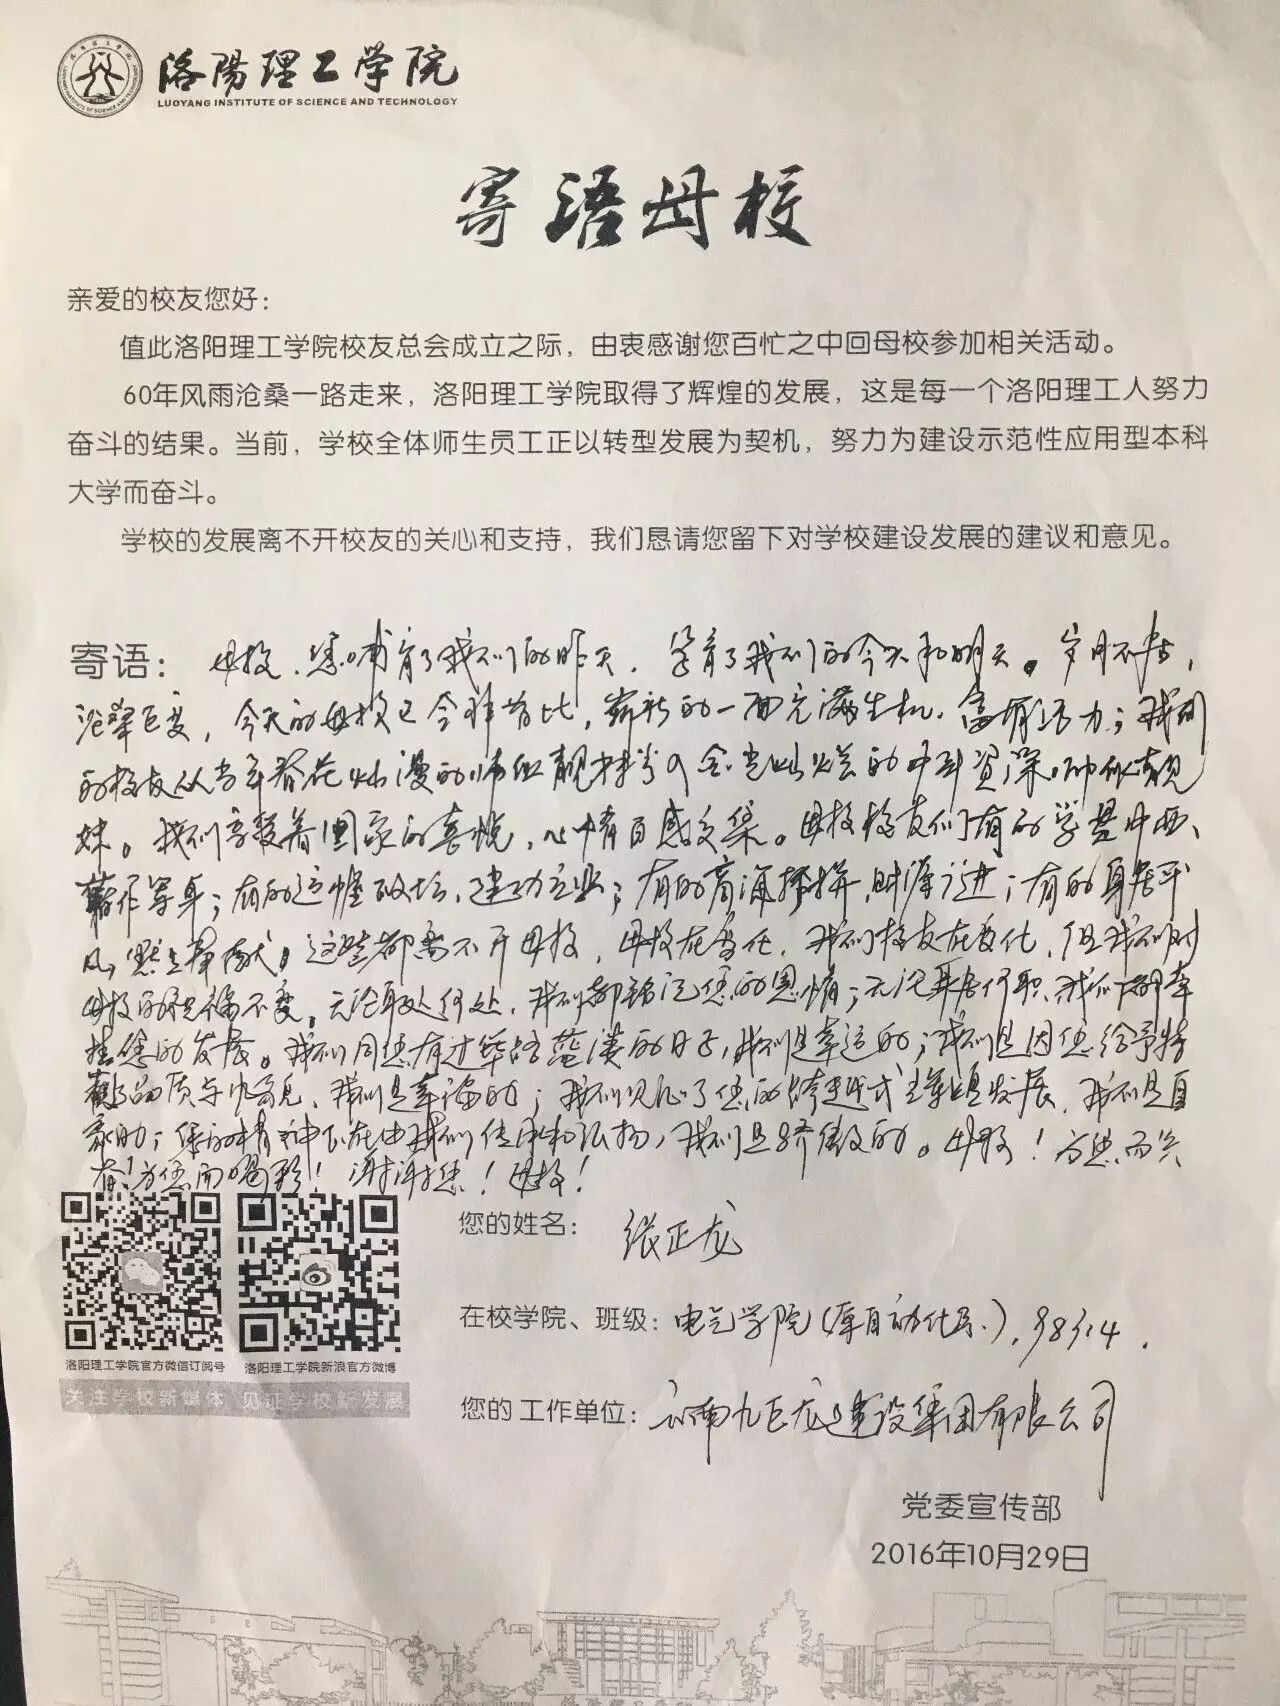 洛陽理工学院
LUOYANG INSTITUTE OF SCIENCE AND TECHNOLOGY
寄语母校
亲爱的校友您好：
值此洛阳理工学院校友总会成立之际，由衷感谢您百忙之中回母校参加相关活动。
60年风雨沧桑一路走来，洛阳理工学院取得了辉煌的发展，这是每一个洛阳理工人努力
奋斗的结果。当前，学校全体师生员工正以转型发展为契机，努力为建设示范性应用型本科
大学而奋斗。
学校的发展离不开校友的关心和支持，我们恳请您留下对学校建设发展的建议和意见。
寄语：母校、您哺育了我们的昨天，孕育了我们的今天和明天。岁月不居，
沧桑巨变，今天的母校已今非昔比，崭新的一面充满生机、富有活力；我们
的校友从当年春花灿漫的帅假靓妹的
妹。我们享受着回家的喜悦，心情百感交集。母校校友们有的学贯中西、
著作等身；有的运筹破坛，建功立业；有的商海搏拼，财源广进；有的身居平
凡，默默奉献。这些都离不开母校，母校在变化，我们校友在变化，但我们对
母校的祝福不变。无论身处何处，我们都铭记您的恩情；无论身居何职、我们都牵
挂您的发展。我们同您有过筚路蓝缕的日子，我们是幸运的；我们是因您给予特
有的品质与，我们是幸福的；我们见证了您的跨越式发展，我们是自
豪的；您的精神正在由我们传承和弘扬，我们是骄傲的。母校！为您而兴
奋！为您而喝彩！谢谢您！母校！
您的姓名：张正龙
在校学院、班级：电气学院（原自动化系），
您的工作单位：河南九巨龙建设集团有限公司
洛阳理工学院官方微信订阅号
洛阳理工学院新浪官方微博
关注学校新媒体 见证学校新发展
党委宣传部
2016年10月29日